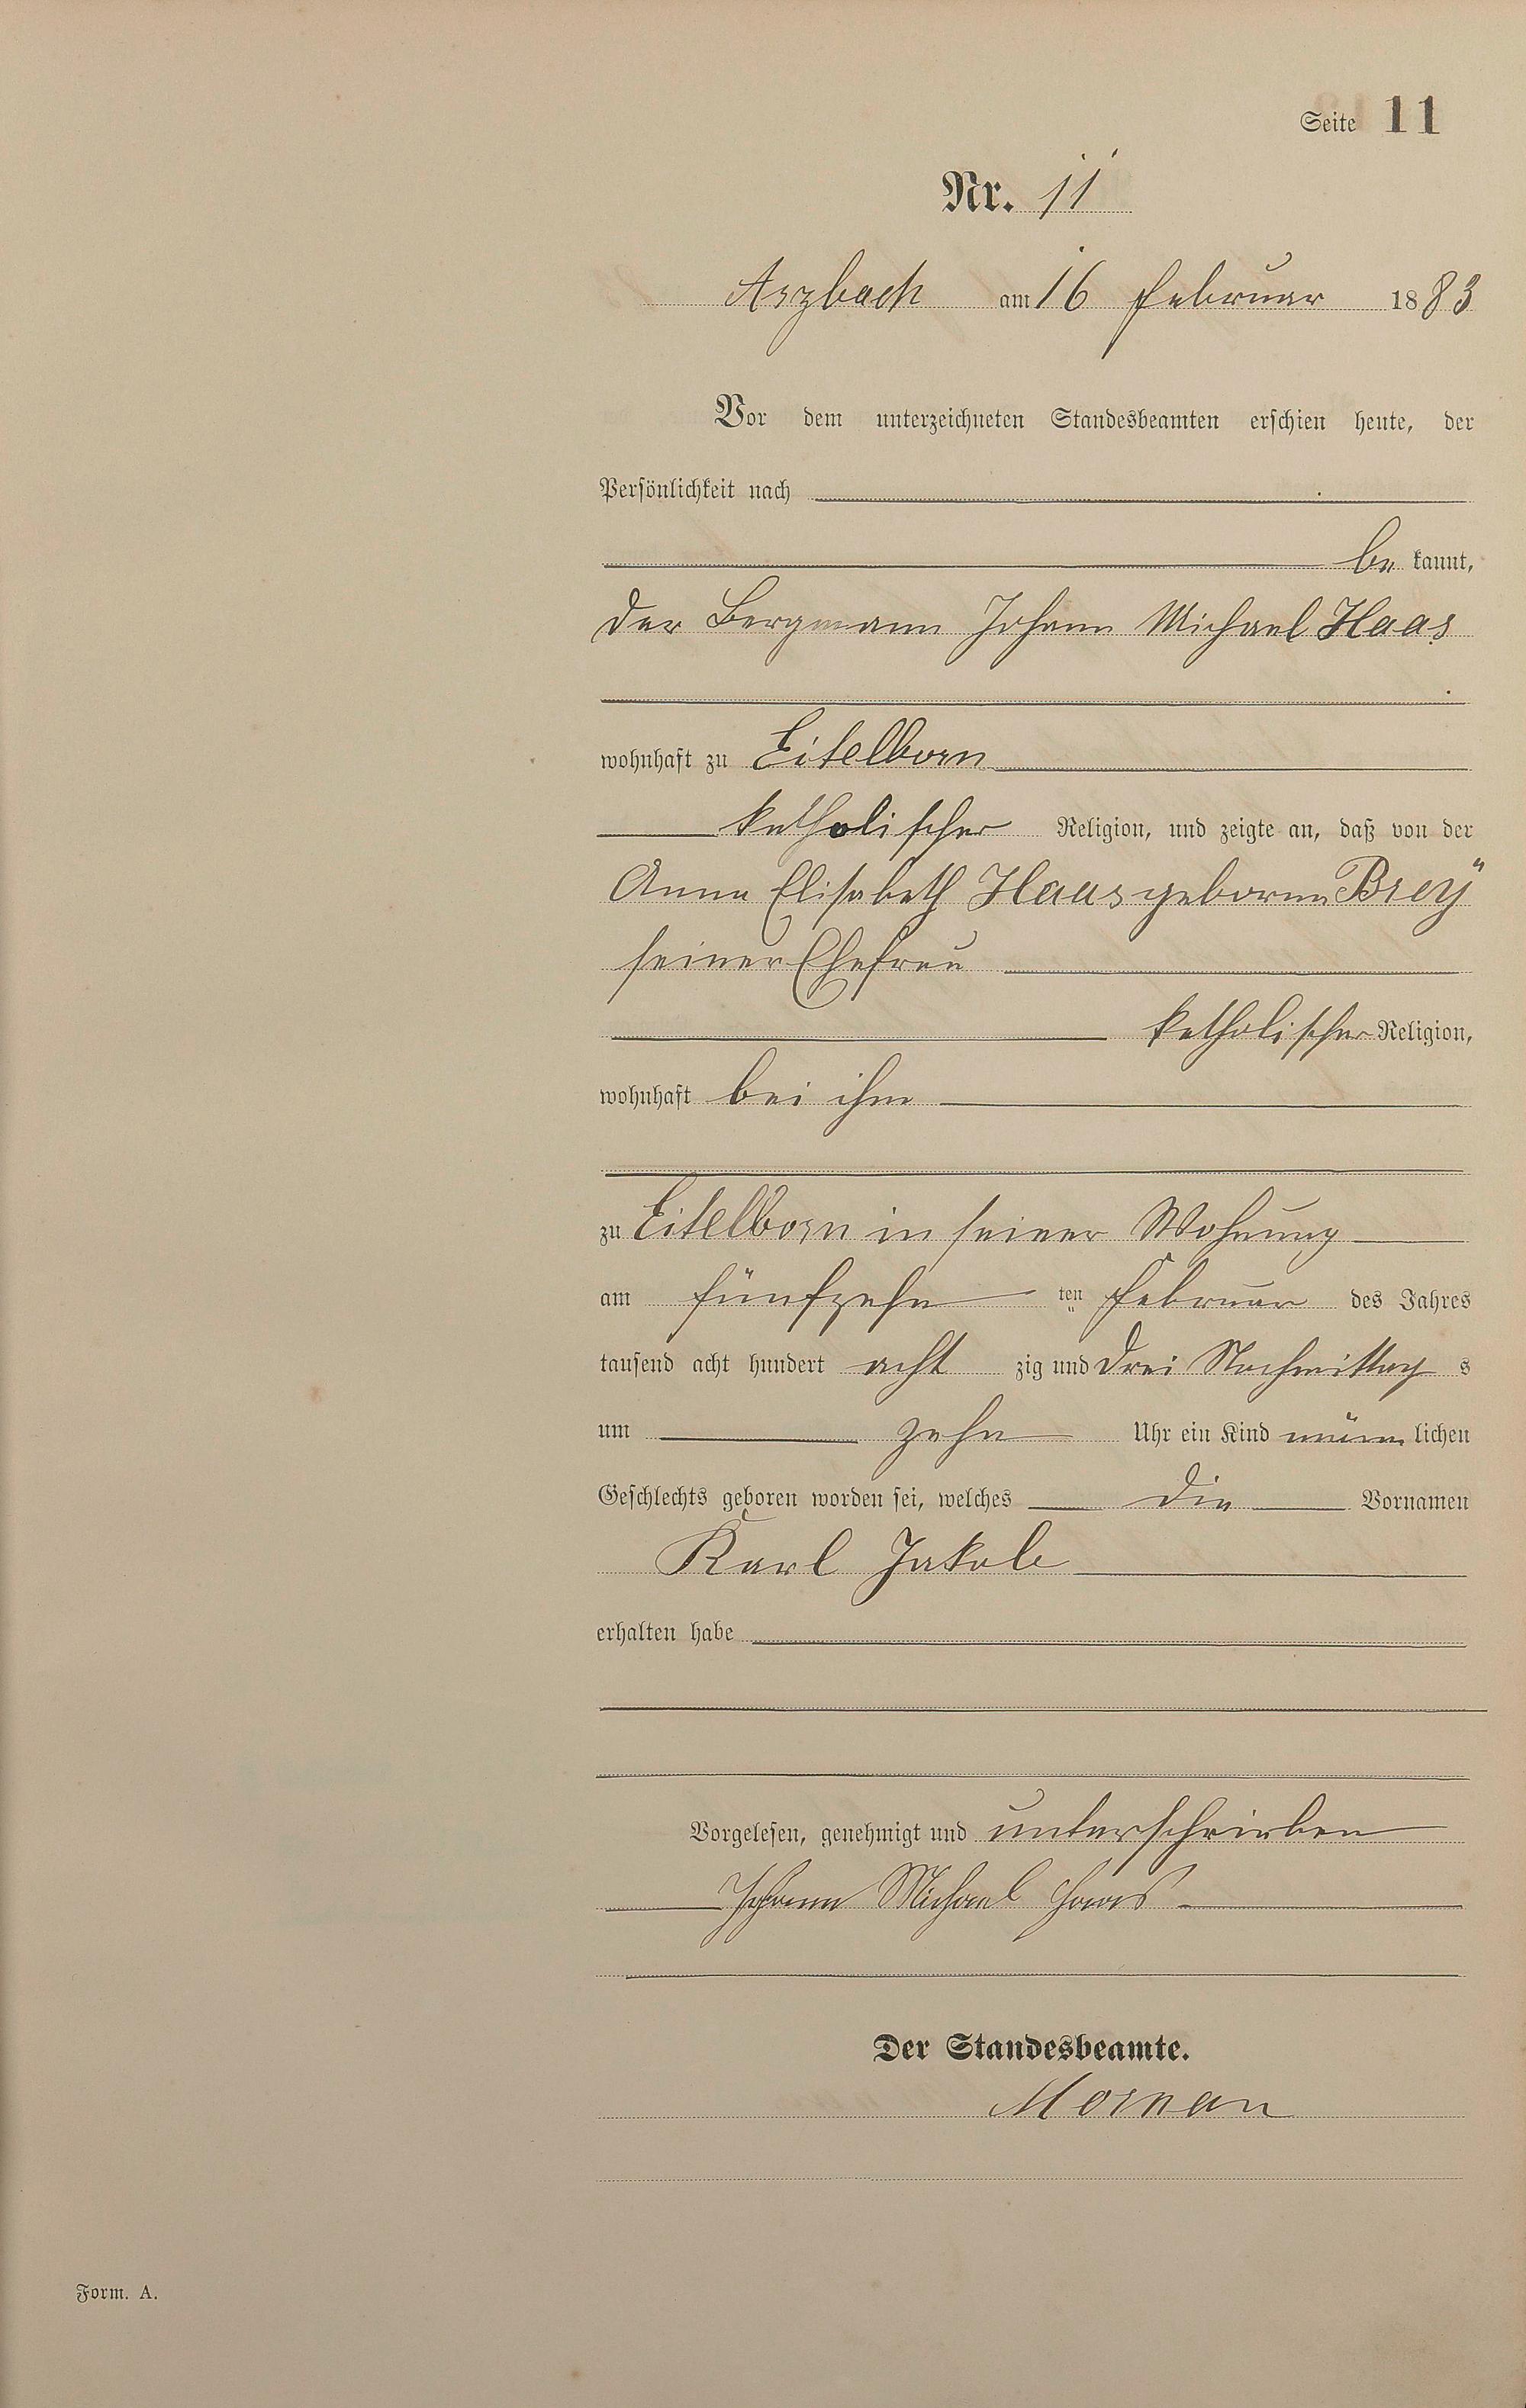 Seite 11
Nr. 11
Arzbach am 16 Februar 1883
Vor dem unterzeichneten Standesbeamten erschien heute, der
Persönlichkeit nach
be kannt,
der Bergmann Johann Michael Haas
wohnhaft zu Eitelborn
katholischer Religion, und zeigte an, daß von der
Anna Elisabeth Haas geborne Breÿ
seiner Ehefrau
katholischer Religion,
wohnhaft bei ihm
zu Eitelborn in seiner Wohnung
am fünfzehn ten Februar des Jahres
tausend acht hundert acht zig und drei Nachmittag s
um zehn Uhr ein Kind männ lichen
Geschlechts geboren worden sei, welches die Vornamen
Karl Jakob
erhalten habe
Vorgelesen, genehmigt und unterschrieben
Johann Michael Haas
Der Standesbeamte.
Form. A.